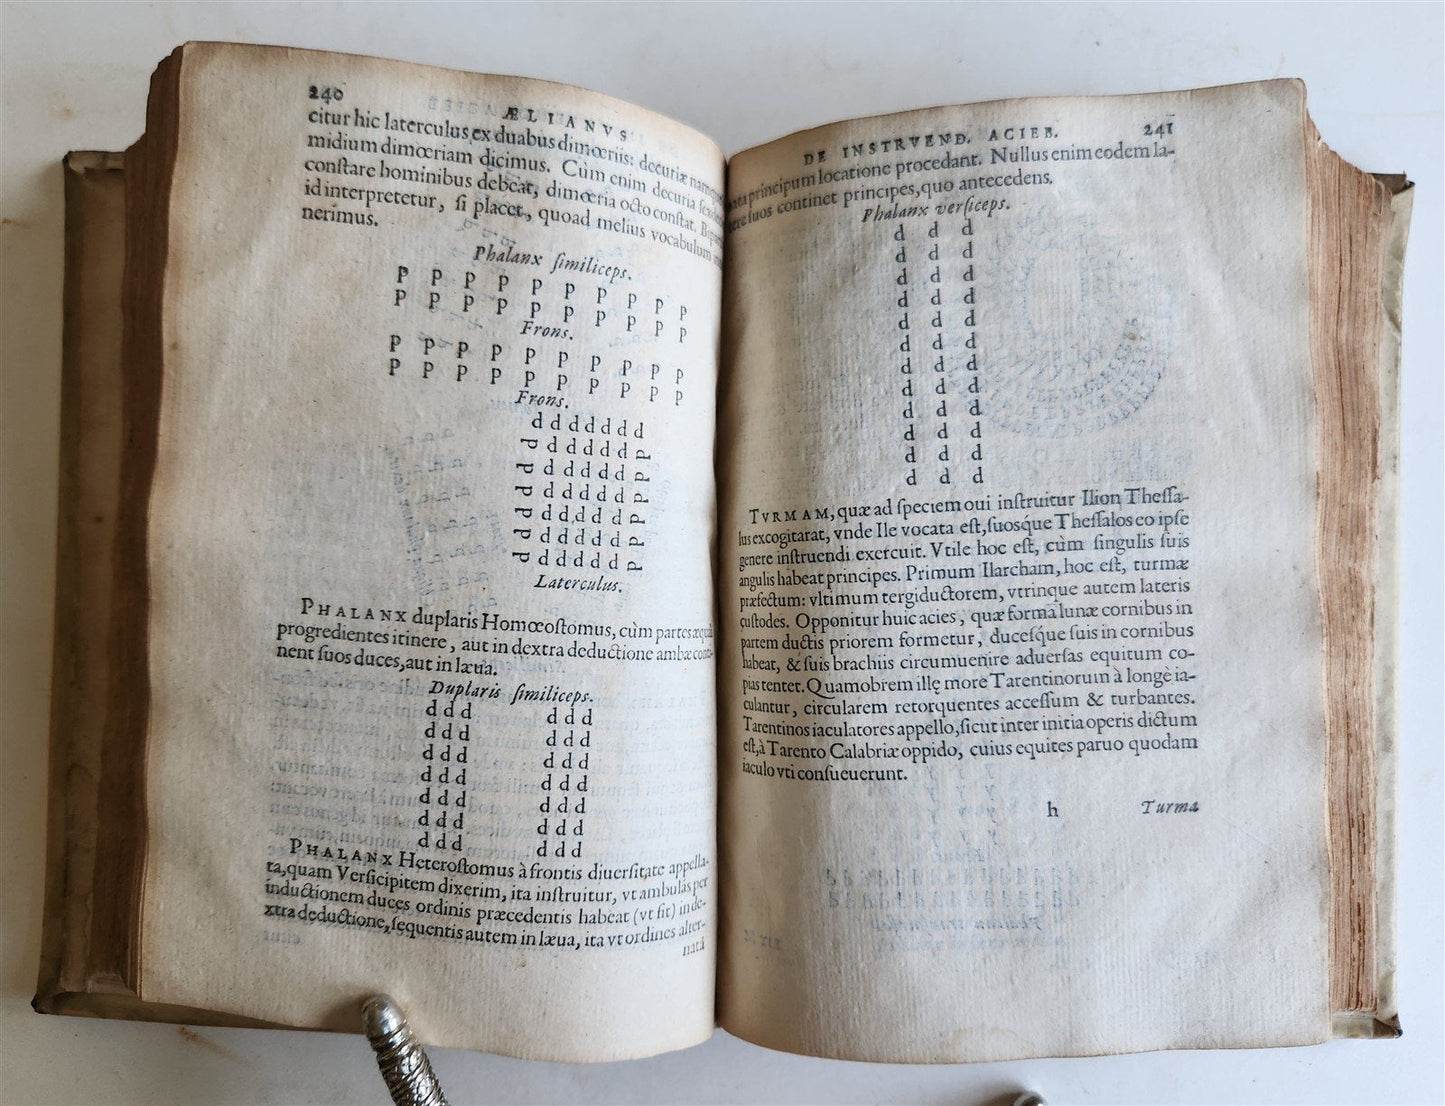 240
ÆLIANVS
citur hic laterculus ex duabus dimœriis: decuriæ namque
midium dimœriam dicimus. Cùm enim decuria
constare hominibus debeat, dimœria octo constat.
id interpretetur, si placet, quoad melius vocabulum
nerimus.
Phalanx similiceps.
P P P P P P P P P P
P P P P P P P P P P
Frons.
P P P P P P P P P P
P P P P P P P P P P
Frons.
d d d d d d d
d d d d d d p
d d d d d d p
d d d d d d p
d d d d d d p
d d d d d d p
d d d d d d p
Laterculus.
PHALANX duplaris Homœostomus, cùm partes
progredientes itinere, aut in dextra deductione ambæ conti-
nent suos duces, aut in læua.
Duplaris similiceps.
d d d d d d
d d d d d d
d d d d d d
d d d d d d
d d d d d d
d d d d d d
d d d d d d
PHALANX Heterostomus à frontis diuersitate appella-
ta, quam Versicipitem dixerim, ita instruitur, vt ambulás per
inductionem duces ordinis præcedentis habeat (vt sit) in de-
xtra deductione, sequentis autem in læua, ita vt ordines alter-
natá
DE INSTRVEND. ACIEB.
241
principum locatione procedant. Nullus enim eodem la-
tere suos continet principes, quo antecedens.
Phalanx versiceps.
d d d
d d d
d d d
d d d
d d d
d d d
d d d
d d d
d d d
d d d
d d d
d d d
TVRMAM, quæ ad speciem oui instruitur Ilion Thessa-
lus excogitarat, vnde Ile vocata est, suosque Thessalos eo ipse
genere instruendi exercuit. Vtile hoc est, cùm singulis suis
angulis habeat principes. Primum Ilarcham, hoc est, turmæ
præfectum: vltimum tergiductorem, vtrinque autem lateris
custodes. Opponitur huic acies, quæ forma lunæ cornibus in
partem ductis priorem formetur, ducesque suis in cornibus
habeat, & suis brachiis circumuenire aduersas equitum co-
pias tentet. Quamobrem illę more Tarentinorum à longè ia-
culantur, circularem retorquentes accessum & turbantes.
Tarentinos iaculatores appello, sicut inter initia operis dictum
est, à Tarento Calabriæ oppido, cuius equites paruo quodam
iaculo vti consueuerunt.
h
Turma